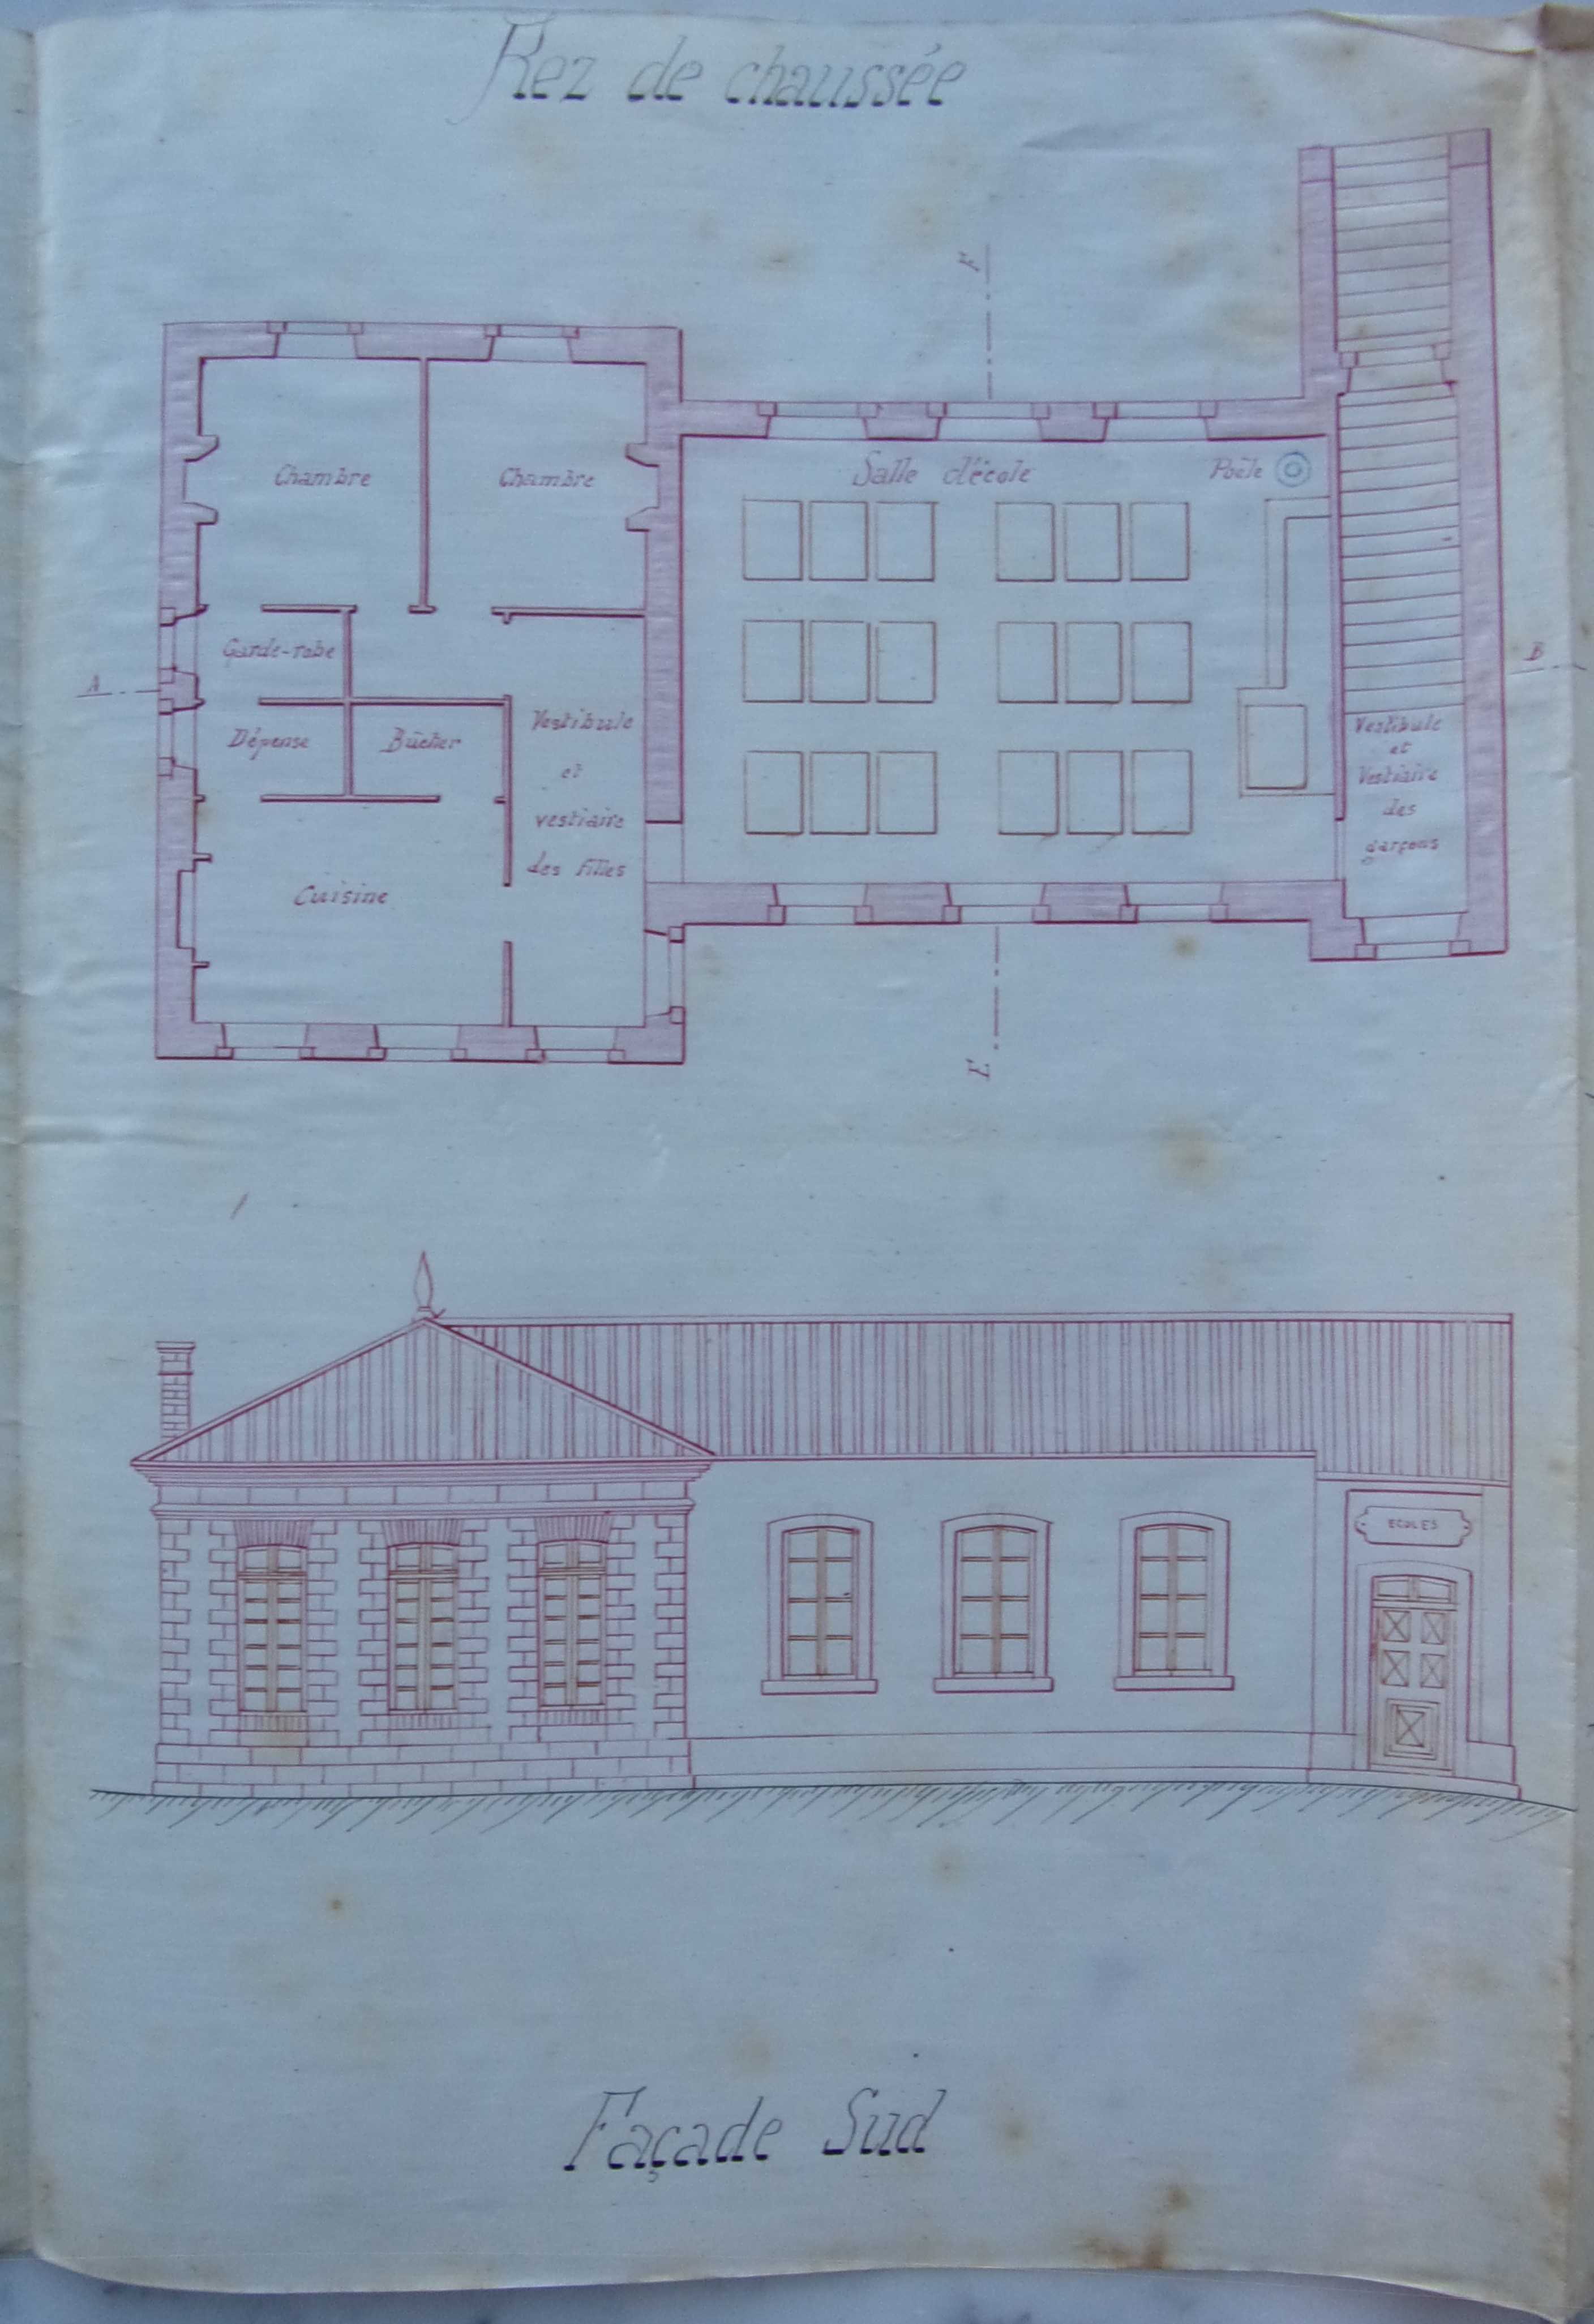 Rez de chaussée
F
Chambre
Chambre
Salle d'école
Poële
Garde-robe
A
B
Dépense
Bûcher
Vestibule
et
vestiaire
des filles
Vestibule
et
Vestiaire
des
garçons
Cuisine
E
ECOLES
Façade Sud